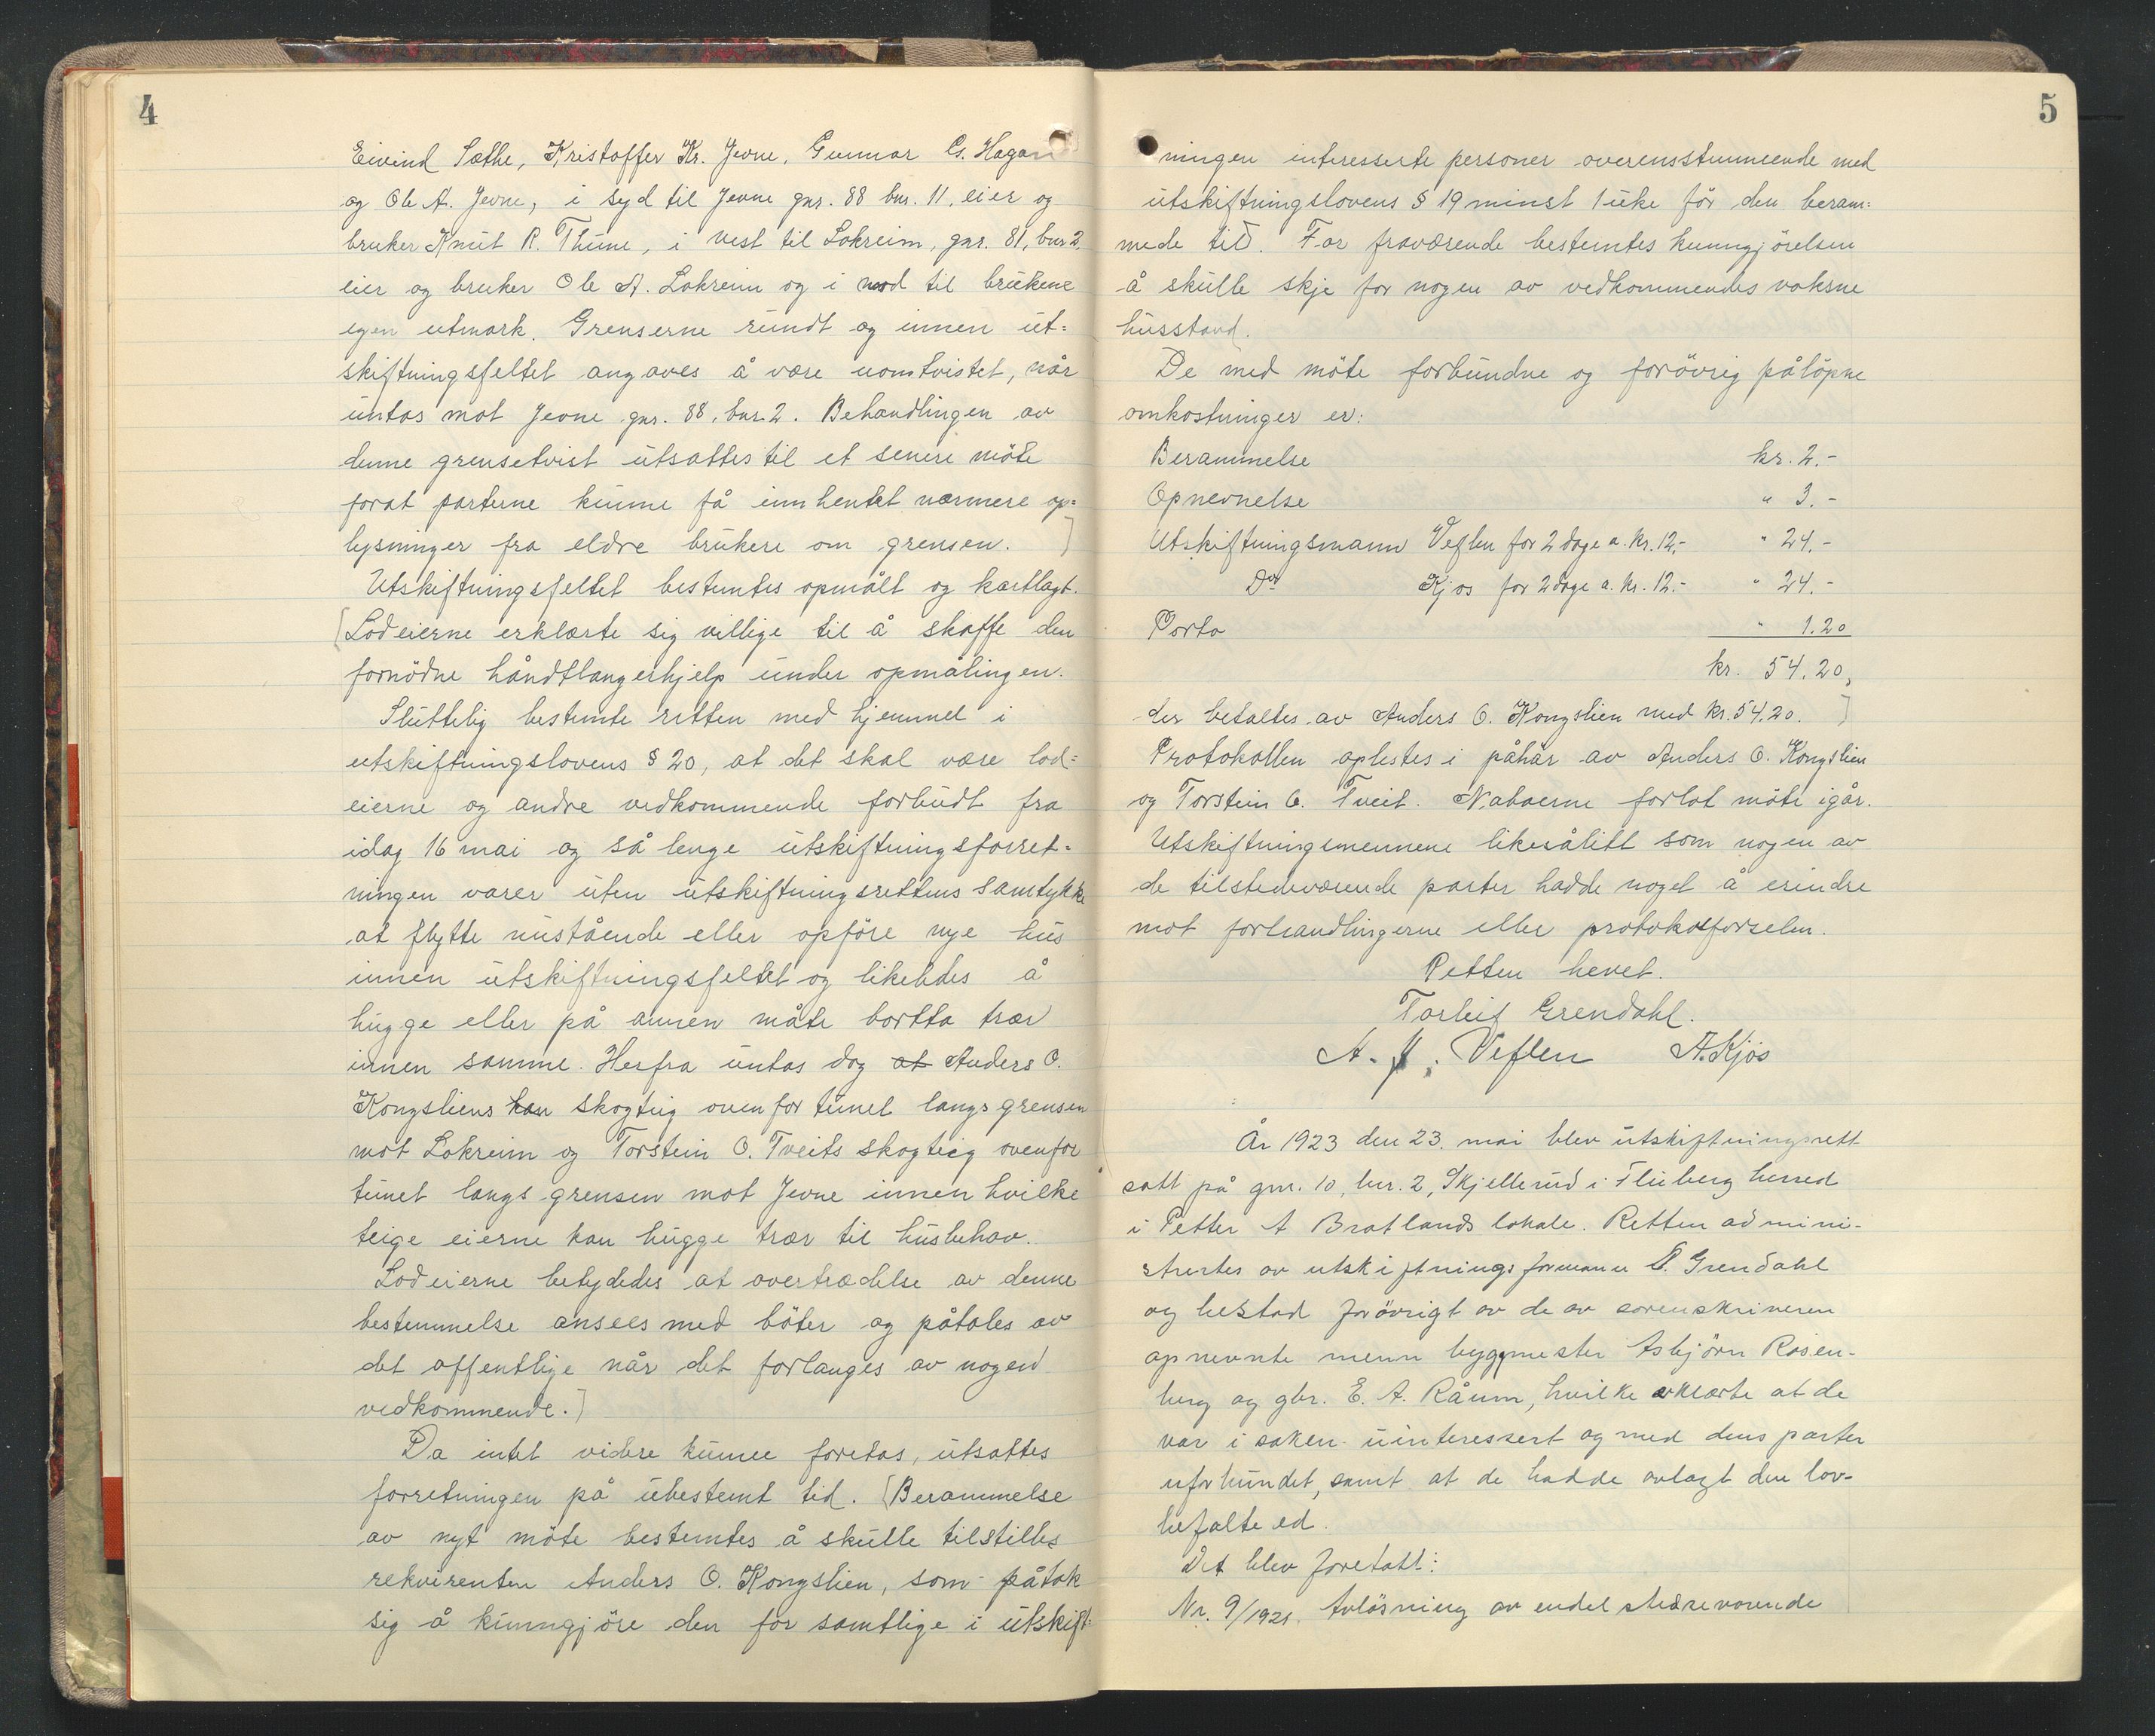 4
Eivind Sæthe, Kristoffer Kr. Jevne, Gunnar G. Hagan
og Ole A. Jevne, i syd til Jevne gnr. 88 bnr. 11, eier og
bruker Knut R. Thune, i vest til Lokreim, gnr. 81, bnr 2,
eier og bruker Ole A. Lokreim og i nord til brukene
egen utmark. Grenserne rundt og innen ut=
skiftningsfeltet angaves å være uomtvistet, når
untas mot Jevne gnr. 88, bnr. 2. Behandlingen av
denne grensetvist utsattes til et senere möte
forat parterne kunne få innhentet nærmere op=
lysninger fra eldre brukere om grensen. ]
Utskiftningsfeltet bestemtes opmålt og kartlagt.
[Lodeierne erklærte sig villige til å skaffe den
fornödne håndtlangerhjelp under opmålingen.
Sluttelig bestemte retten med hjemmel i
utskiftningslovens § 20, at det skal være lod=
eierne og andre vedkommende forbudt fra
idag 16 mai og så lenge utskiftningsforret=
ningen varer uten utskiftningsrettens samtykke
at flytte nustående eller opföre nye hus
innen utskiftningsfeltet og likeledes å
hugge eller på annen måte bortta trær
innen samme. Herfra untas dog at Anders O.
Kongsliens kan skogteig ovenfor tunet langs grensen
mot Lokreim og Torstein O. Tveits skogteig ovenfor
tunet langs grensen mot Jevne innen hvilke
teige eierne kan hugge trær til husbehov.
Lodeierne betydedes at overtrædelse av denne
bestemmelse ansees med böter og påtales av
det offentlige når det forlanges av nogen
vedkommende.]
Da intet videre kunne foretas, utsattes
forretningen på ubestemt tid. [Berammelse
av nyt möte bestemtes å skulle tilstilles
rekvirenten Anders O. Kongslien, som påtok
sig å kunngjöre den for samtlige i utskift=
5
ningen interesserte personer overensstemmende med
utskiftningslovens § 19 minst 1 uke för den beram=
mede tid. For fraværende bestemtes kunngjörelsen
å skulle skje for nogen av vedkommendes voksne
husstand.
De med möte forbundne og forövrig pålöpne
omkostninger er:
Berammelse kr. 2.-
Opnevnelse " 3.-
Utskiftningsmann Veflen for 2 dage a. kr. 12,- " 24.-
Do Kjos for 2 dage a. kr. 12.- " 24.-
Porto " 1.20
kr. 54.20,
der betaltes av Anders O. Kongslien med kr. 54.20. ]
Protokollen oplestes i påhör av Anders O. Kongslien
og Torstein O. Tveit. Naboerne forlot möte igår.
Utskiftningsmennene likesålitt som nogen av
de tilstedeværende parter hadde noget å erindre
mot forhandlingerne eller protokolforselen.
Retten hevet.
Torleif Grendahl.
A. J. Veflen A. Kjos
År 1923 den 23. mai blev utskiftningsrett
satt på gnr. 10, bnr. 2, Skjellerud i Fluberg herred
i Petter A Bratlands lokale. Retten admini-
strertes av utskiftningsformann T. Grendahl
og bestod forövrigt av de av sorenskriveren
opnevnte menn byggmester Asbjörn Rosen-
berg og gbr. E. A. Råum, hvilke erklærte at de
var i saken uinteressert og med dens parter
uforbundet, samt at de hadde avlagt den lov-
befalte ed.
Det blev foretatt:
Nr. 9/1921. Avlösning av endel stedsevarende